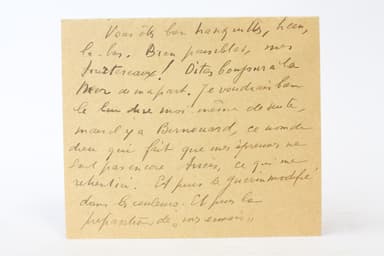 Vous êtes bien tranquilles, hein,
là-bas. Bien paisibles, mes
! Dites bonjour à la
Mer de ma part. Je voudrais bien
le lui dire moi même de suite,
mais il y a Bernouard, ce nom de
dieu qui fait que mes épreuves ne
sont pas encore tirées, ce qui me
retient ici. Et puis le modifié
dans les couleurs. Et puis la
préparation de "nos ennuis".